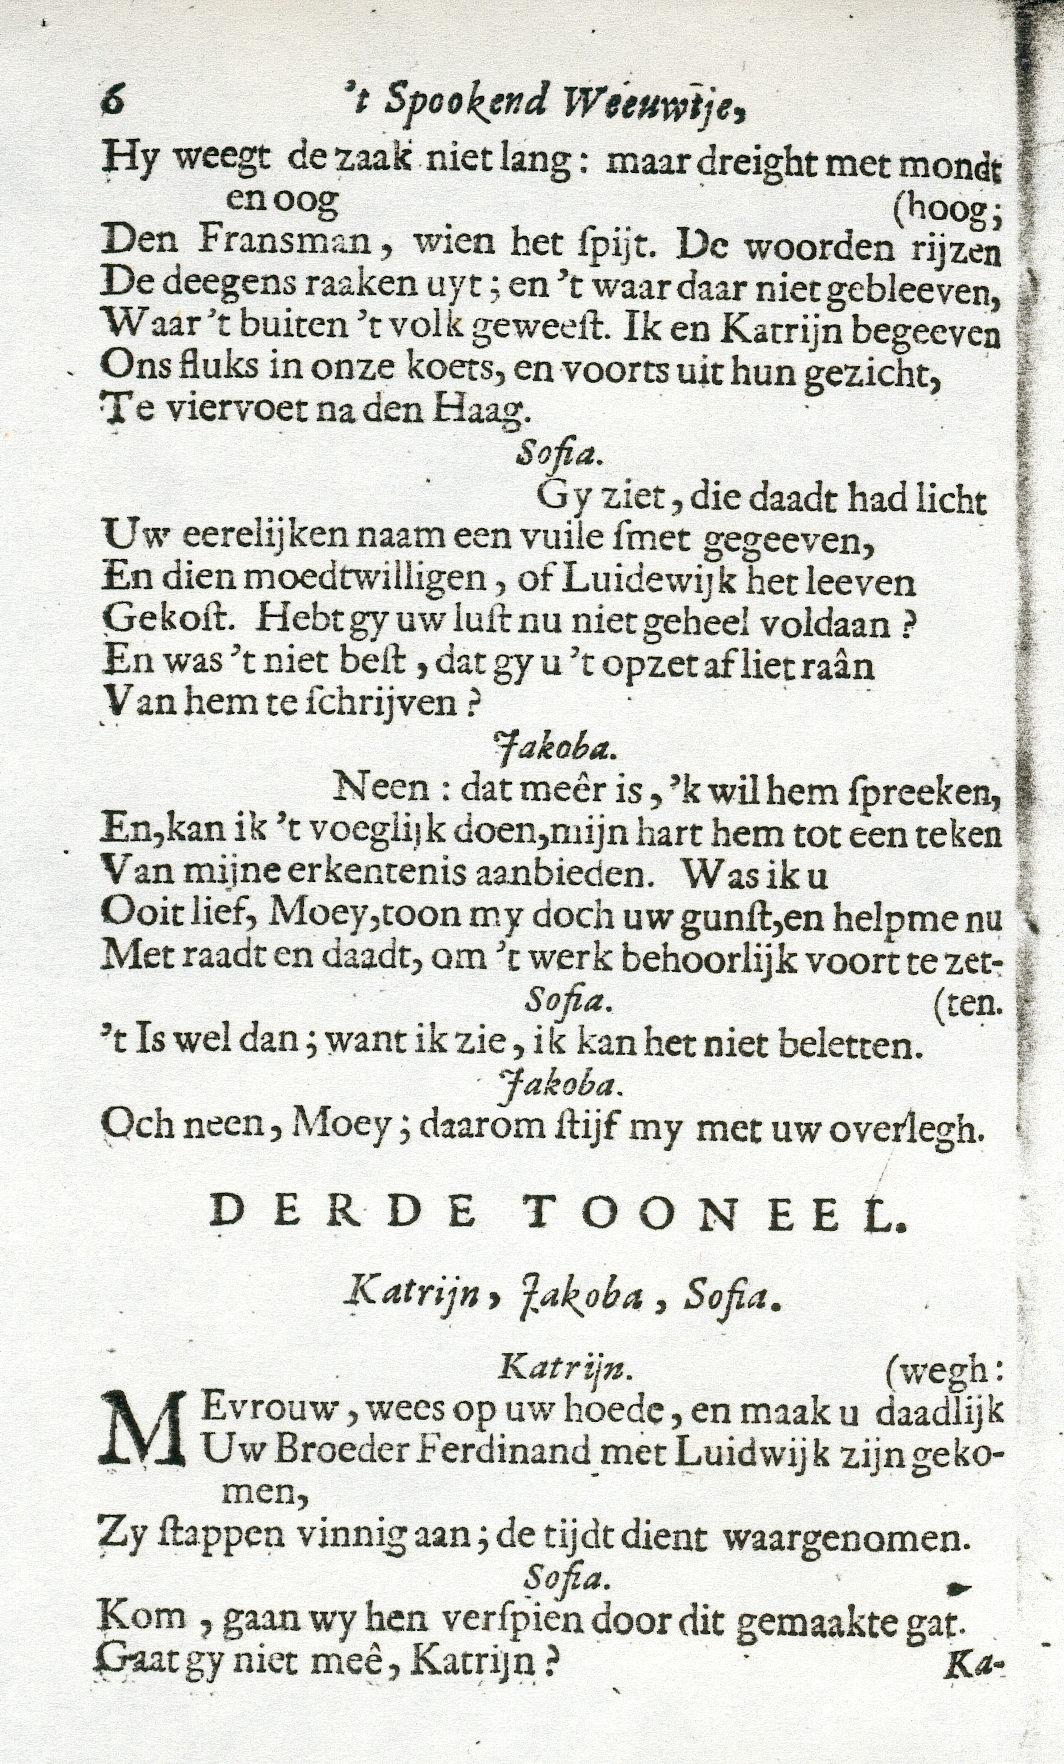 6 't Spookend Weeuwtje,
Hy weegt de zaak niet lang: maar dreight met mondt
en oog (hoog;
Den Fransman, wien het ſpijt. De woorden rijzen
De deegens raaken uyt; en 't waar daar niet gebleeven,
Waar 't buiten 't volk geweeſt. Ik en Katrijn begeeven
Ons fluks in onze koets, en voorts uit hun gezicht,
Te viervoet na den Haag.
Sofia.
Gy ziet, die daadt had licht
Uw eerelijken naam een vuile ſmet gegeeven,
En dien moedtwilligen, of Luidewijk het leeven
Gekoſt. Hebt gy uw luſt nu niet geheel voldaan?
En was 't niet beſt, dat gy u 't opzet af liet raân
Van hem te ſchrijven?
Jakoba.
Neen: dat meêr is, 'k wil hem ſpreeken,
En, kan ik 't voeglijk doen, mijn hart hem tot een teken
Van mijne erkentenis aanbieden. Was ik u
Ooit lief, Moey, toon my doch uw gunſt, en help me nu
Met raadt en daadt, om 't werk behoorlijk voort te zet-
Sofia. (ten.
't Is wel dan; want ik zie, ik kan het niet beletten.
Jakoba.
Och neen, Moey; daarom ſtijf my met uw overlegh.
DERDE TOONEEL.
Katrijn, Jakoba, Sofia.
Katrijn. (wegh:
MEvrouw, wees op uw hoede, en maak u daadlijk
Uw Broeder Ferdinand met Luidwijk zijn geko-
men,
Zy ſtappen vinnig aan; de tijdt dient waargenomen.
Sofia.
Kom, gaan wy hen verſpien door dit gemaakte gat.
Gaat gy niet meê, Katrijn? Ka-